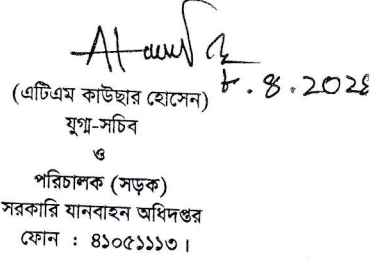 ৮.৪.২০২৬
(এটিএম কাউছার হোসেন)
যুগ্ম-সচিব
ও
পরিচালক (সড়ক)
সরকারি যানবাহন অধিদপ্তর
ফোন : ৪১০৫১১১৩।